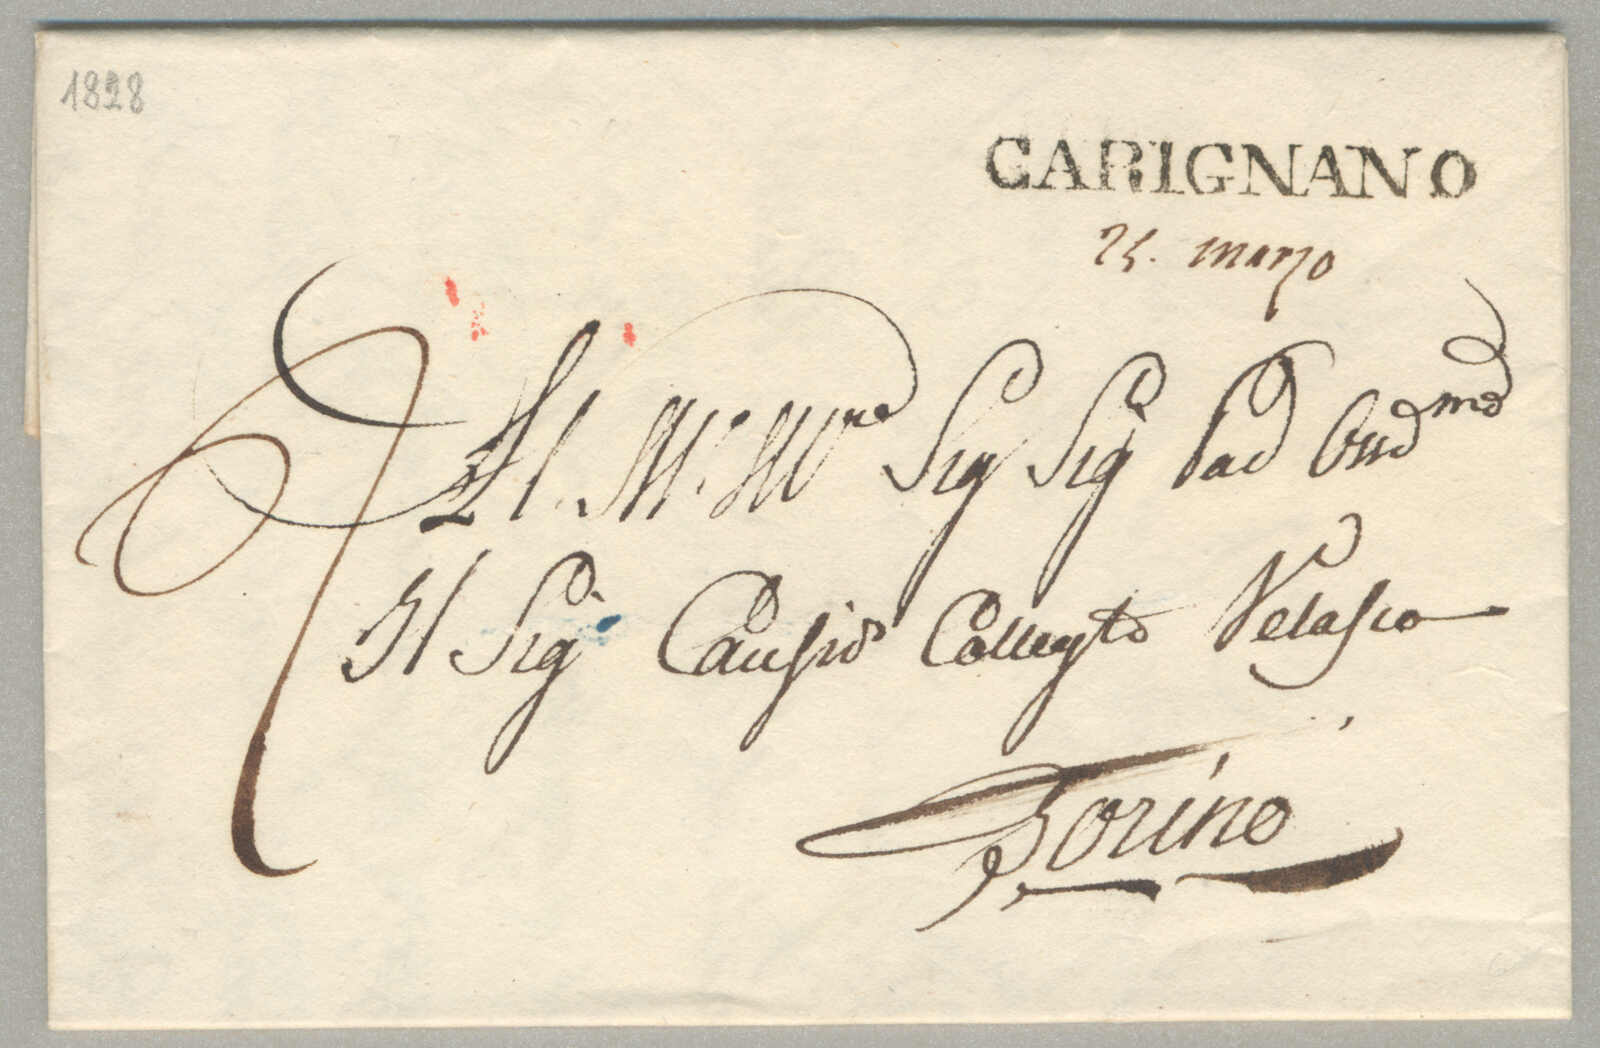 1828
CARIGNANO
25. marzo
All. M.to Ill.re Sig Sig Pad Oss.mo
Il Sig.r Causid.o Colleg.to Velasco
Torino